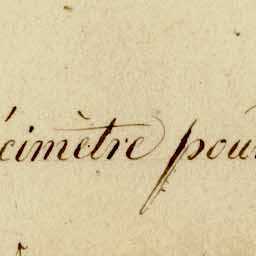 écimètre pour